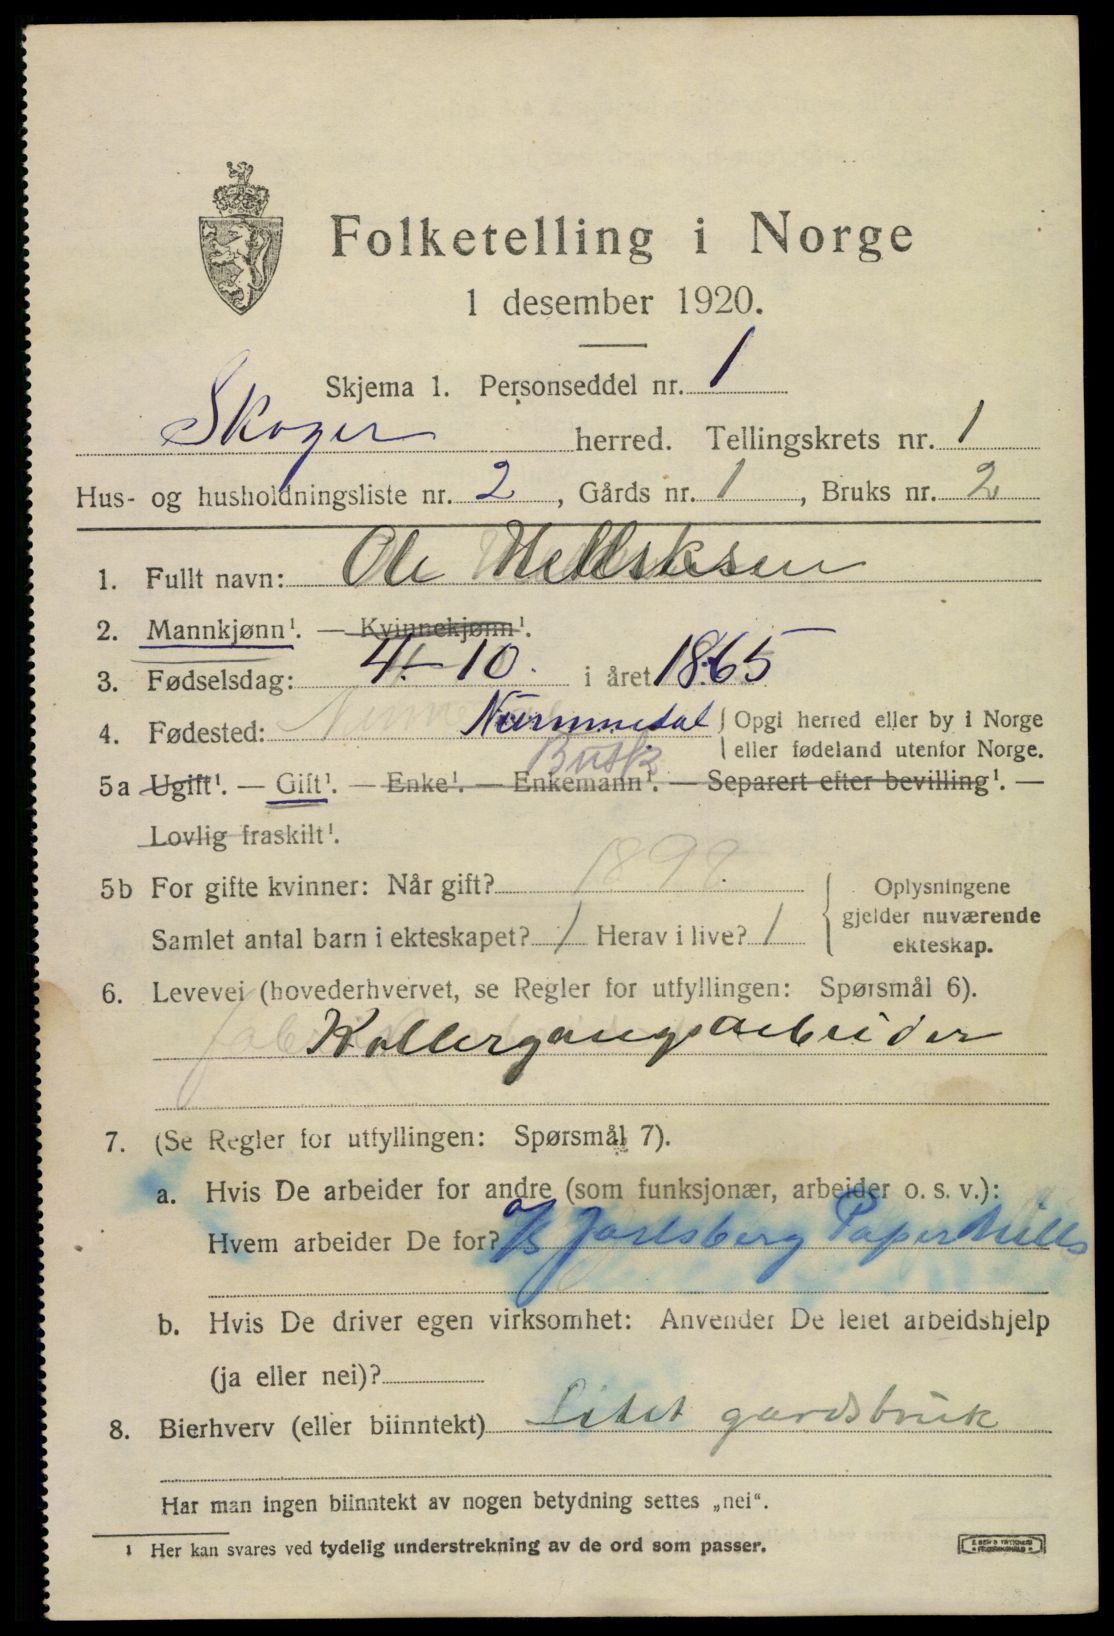 Folketelling i Norge
1 desember 1920.
Skjema 1. Personseddel nr. 1
Skoger herred. Tellingskrets nr. 1
Hus- og husholdningsliste nr. 2, Gårds nr. 1, Bruks nr. 2
1. Fullt navn: Ole Helleksen
2. Mannkjønn¹. — Kvinnekjønn¹.
3. Fødselsdag: 4.–10. i året 1865
4. Fødested: Nummedal { Opgi herred eller by i Norge
Busk. eller fødeland utenfor Norge.
5a Ugift¹. — Gift¹. — Enke¹. — Enkemann¹. — Separert efter bevilling¹. —
Lovlig fraskilt¹.
5b For gifte kvinner: Når gift? 1899 Oplysningene
gjelder nuværende
Samlet antal barn i ekteskapet? 1 Herav i live? 1 ekteskap.
6. Levevei (hovederhvervet, se Regler for utfyllingen: Spørsmål 6).
Kollergangsarbeider
7. (Se Regler for utfyllingen: Spørsmål 7).
a. Hvis De arbeider for andre (som funksjonær, arbeider o. s. v.):
Hvem arbeider De for? A/S Jarlsberg Paper Mills
b. Hvis De driver egen virksomhet: Anvender De leiet arbeidshjelp
(ja eller nei)?
8. Bierhverv (eller biinntekt) Litet gardsbruk
Har man ingen biinntekt av nogen betydning settes „nei“.
¹ Her kan svares ved tydelig understrekning av de ord som passer.